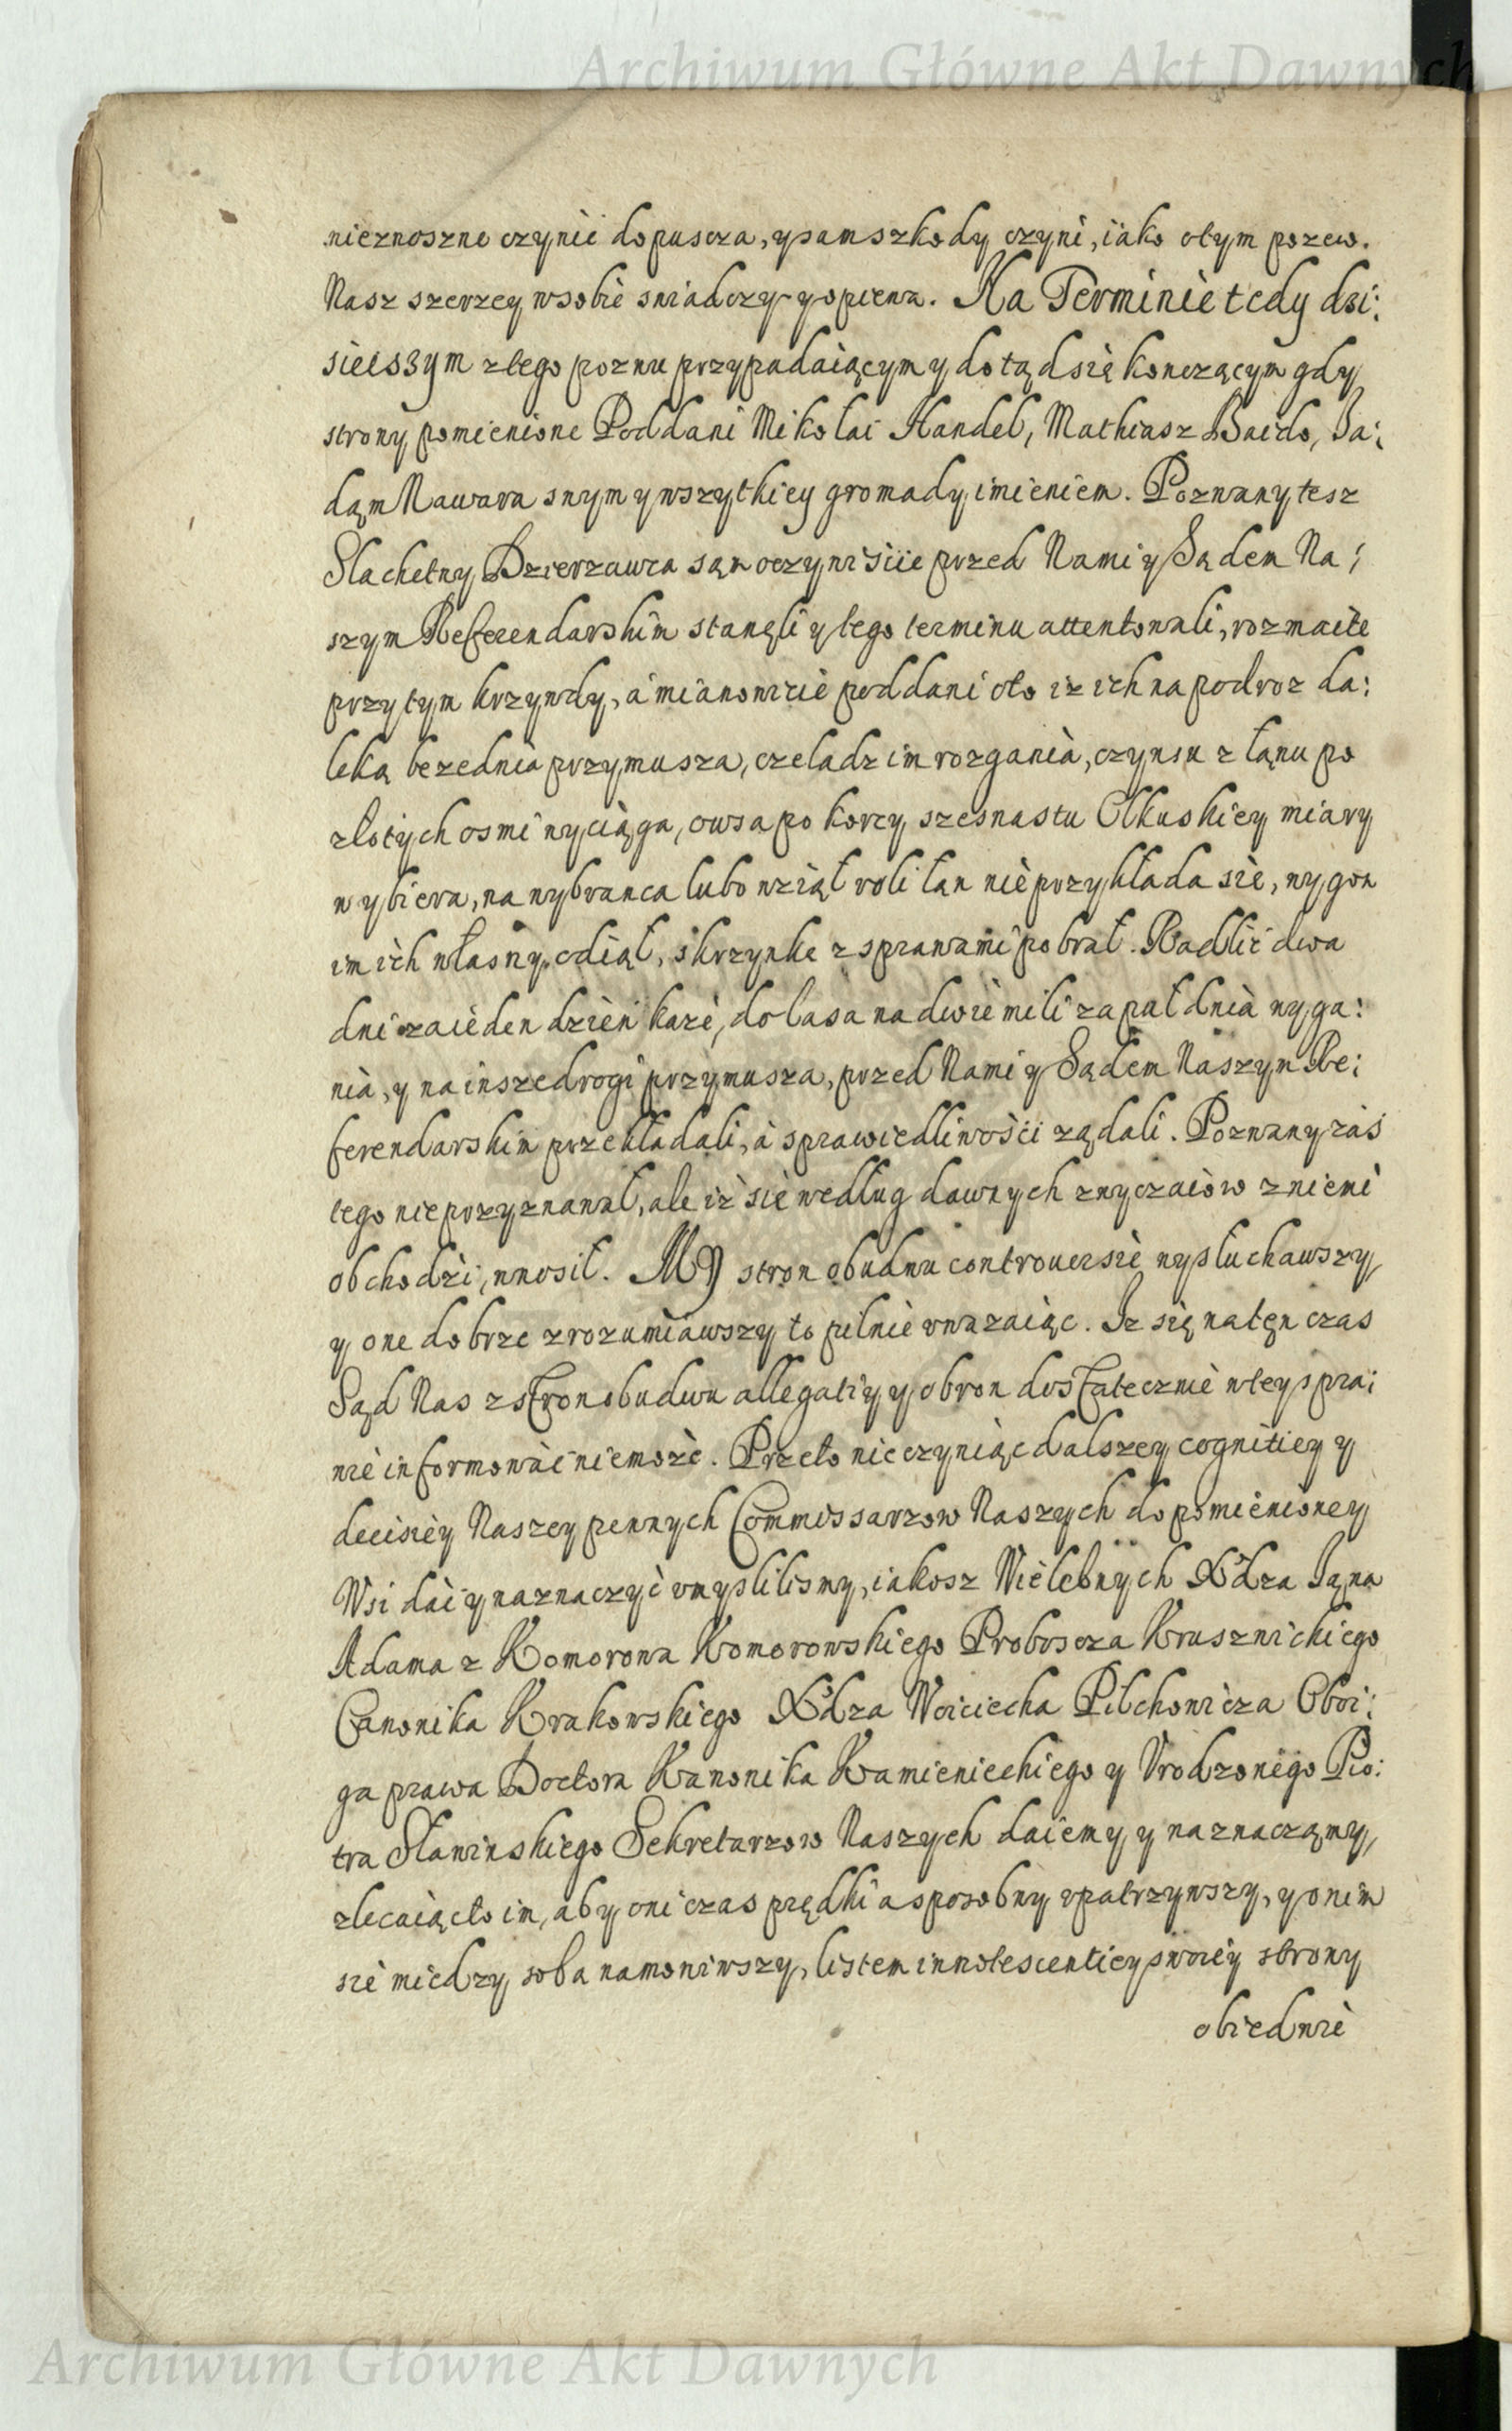 Archiwum Główne Akt Dawnych
nieznoszne czynić dopuscza, y sam szkody czyni, iako otym pozew.
Nasz szerzey wsobie swiadczy y opiewa. Na Terminie tedy dzi:
sieiszym ztego pozwu przypadaiącym y dotąd się konczącym gdy
strony pomienione Poddani Mikołai Handel, Mathiasz Baido, Ja:
dąm Nawara snym y wszytkiey gromady imieniem. Pozwany tesz
Slachetny Dzierzawca sąm oczywiscie przed Nami y Sądem Na:
szym Referendarskim stanęli y tego terminu attentowali, rozmaite
przytym krzywdy, a mianowicie poddani oto iz ich na podroz da:
leką bezednia przymusza, czeladz im rozgania, czynsu z łanu po
złotych osmi wyciąga, owsa po korcy szesnastu Olkuskiey miary
wybiera, na wybranca lubo wziął roli łan nie przykłada sie, wygon
im ich własny odiął, skrzynke z sprawami pobrał. Radlić dwa
dni za ieden dzien kaze, do lasa na dwie mili za pał dnia wyga:
nia, y na insze drogi przymusza, przed Nami y Sądem Naszym Re:
ferendarskim przekładali, a sprawiedliwości ządali. Pozwany zaś
tego nie przyznawał, ale iż sie według dawnych zwyczaiów z niemi
obchodzi, wnosił. My stron obudwu controuersie wysłuchawszy
y one dobrze zrozumiawszy to pilnie vwazaiąc. Iz się na tęn czas
Sąd Nas z stron obudwu allegatiy y obron dostatecznie wtey spra:
wie informować nie moze. Przeto nie czyniąc dalszey cognitiey y
decisiey Naszey pewnych Commissarzow Naszych do pomienioney
Wsi dać y naznaczyć vmyslilismy, iakosz Wielebnych Xdza Jąna
Adama z Komorowa Komorowskiego Proboscza Krusznickiego
Canonika Krakowskiego Xdza Woiciecha Pilchowicza Oboi:
ga prawa Doctora Kanonika Kamienieckiego y Vrodzonego Pio:
tra Sławinskiego Sekretarzow Naszych daiemy y naznacząmy,
zlecaiąc to im, aby oni czas prędki a sposobny vpatrzywszy, y onim
sie miedzy soba namowiwszy, listem innotescentiey swoiey strony
obiedwie
Archiwum Główne Akt Dawnych